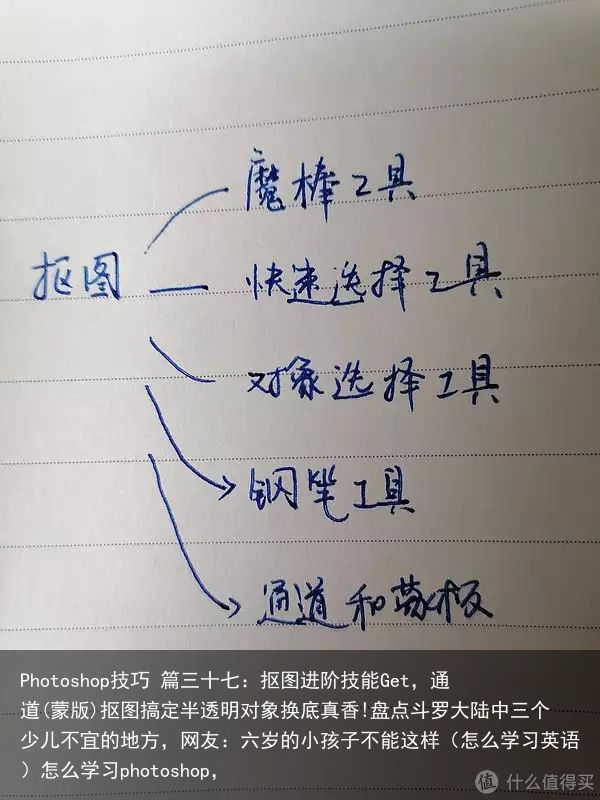 魔棒工具
抠图
快速选择工具
对象选择工具
钢笔工具
通道和蒙板
Photoshop技巧 篇三十七：抠图进阶技能Get，通
道(蒙版)抠图搞定半透明对象换底真香!盘点斗罗大陆中三个
少儿不宜的地方，网友：六岁的小孩子不能这样（怎么学习英语
）怎么学习photoshop，
值 什么值得买